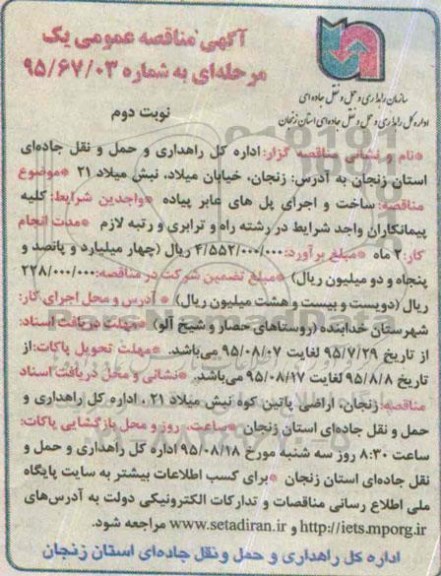 آگهی مناقصه عمومی یک
مرحله‌ای به شماره ۹۵/۶۷/۰۳
سازمان راهداری و حمل و نقل جاده‌ای
اداره کل راهداری و حمل و نقل جاده‌ای استان زنجان
نوبت دوم
*نام و نشانی مناقصه گزار: اداره کل راهداری و حمل و نقل جاده‌ای
استان زنجان به آدرس: زنجان، خیابان میلاد، نبش میلاد ۲۱ *موضوع
مناقصه: ساخت و اجرای پل های عابر پیاده *واجدین شرایط: کلیه
پیمانکاران واجد شرایط در رشته راه و ترابری و رتبه لازم *مدت انجام
کار: ۲ ماه *مبلغ برآورد: ۴/۵۵۲/۰۰۰/۰۰۰ ریال (چهار میلیارد و پانصد و
پنجاه و دو میلیون ریال) *مبلغ تضمین شرکت در مناقصه: ۲۲۸/۰۰۰/۰۰۰
ریال (دویست و بیست و هشت میلیون ریال) * آدرس و محل اجرای کار:
شهرستان خدابنده (روستاهای حصار و شیخ آلو) *مهلت دریافت اسناد:
از تاریخ ۹۵/۷/۲۹ لغایت ۹۵/۰۸/۰۷ می‌باشد. *مهلت تحویل پاکات: از
تاریخ ۹۵/۸/۸ لغایت ۹۵/۰۸/۱۷ می‌باشد. *نشانی و محل دریافت اسناد
مناقصه: زنجان، اراضی پائین کوه نبش میلاد ۲۱ ، اداره کل راهداری و
حمل و نقل جاده‌ای استان زنجان *ساعت، روز و محل بازگشایی پاکات:
ساعت ۸:۳۰ روز سه شنبه مورخ ۹۵/۰۸/۱۸ اداره کل راهداری و حمل و
نقل جاده‌ای استان زنجان *برای کسب اطلاعات بیشتر به سایت پایگاه
ملی اطلاع رسانی مناقصات و تدارکات الکترونیکی دولت به آدرس‌های
http://iets.mporg.ir و www.setadiran.ir مراجعه شود.
اداره کل راهداری و حمل ونقل جاده‌ای استان زنجان
ParsNamadData